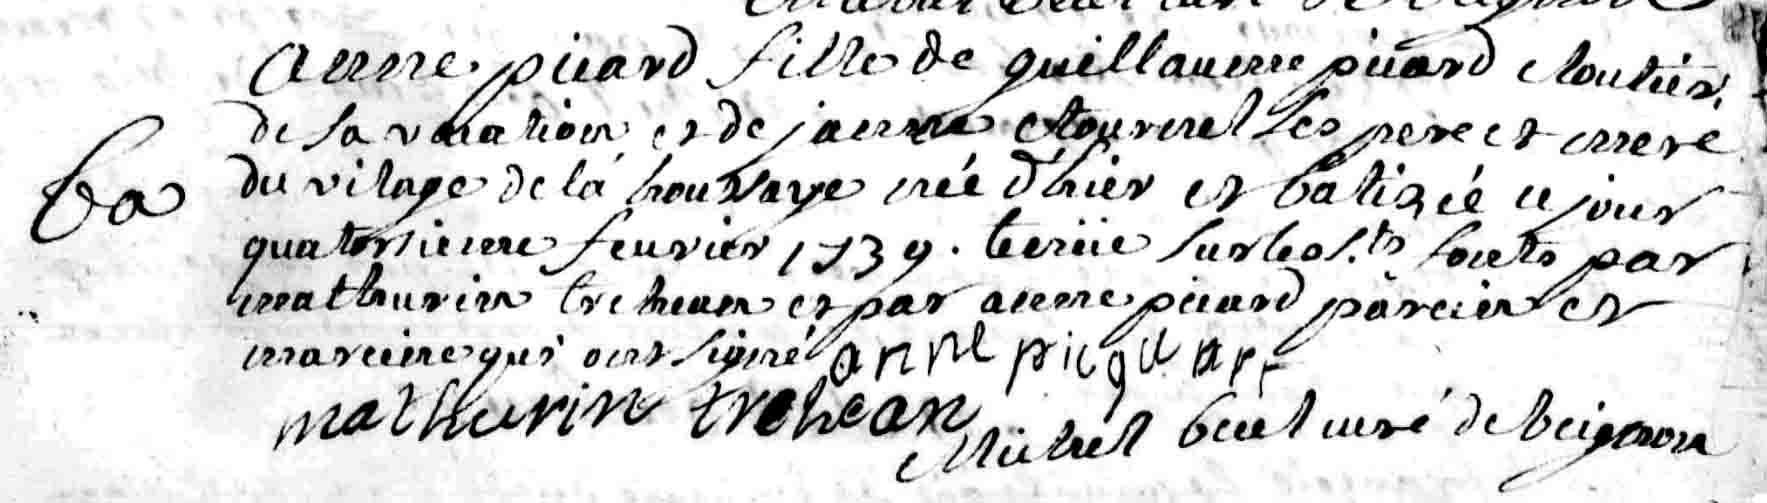 Anne picard fille de guillaume picard cloutier
de sa vacation et de jacune Etournel ses pere et mere
Ba
du vilage de la houssaye née d'hier et batizée ce jour
quatorsieme feuvrier 1739. tenüe sur les s.ts fonts par
mathurin trehean et par anne picard parein et
mareine qui ont signé anne picquart
mathurin trehean
Michel curé de beignon